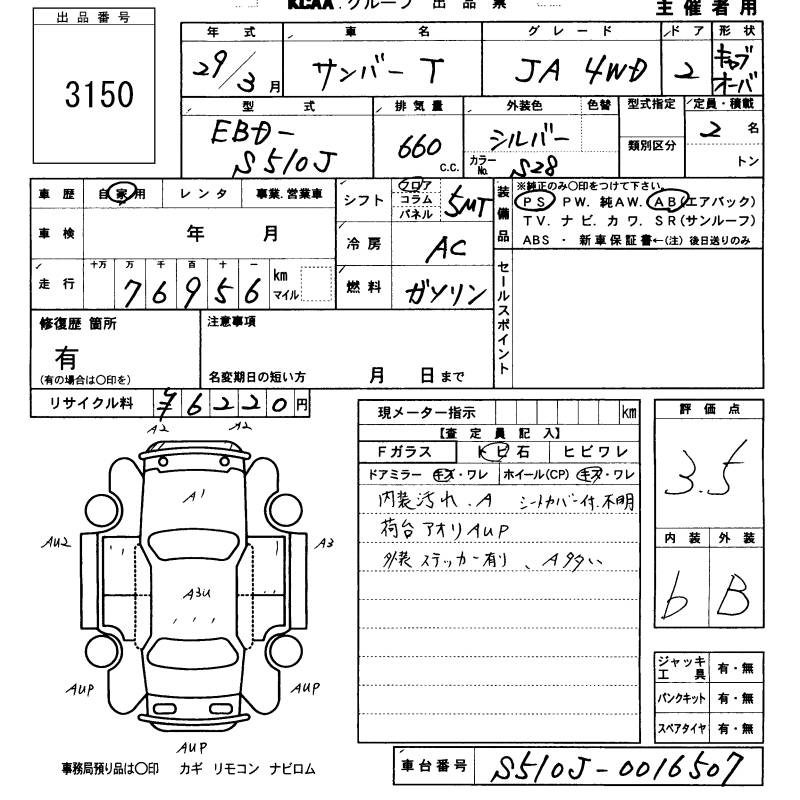 KCAA.グループ 出品票 主催者用
出品番号
3150
年式 車名 グレード ドア 形状
29/3月 サンバーT JA 4WD 2 キャブオーバ
型式 排気量 外装色 色替 型式指定 定員・積載
EBD-S510J 660 c.c. シルバー 類別区分 2名
カラーNo. S28 トン
車歴 自家用 レンタ 事業.営業車 シフト フロア コラム パネル 5MT
装備品 ※純正のみ〇印をつけて下さい。
PS PW. 純AW. AB(エアバック)
TV. ナビ. カワ. SR(サンルーフ)
ABS ・ 新車保証書←(注) 後日送りのみ
車検 年 月 冷房 AC
走行 十万 万 千 百 十 一
76956 km マイル 燃料 ガソリン
セールスポイント
修復歴 箇所 注意事項
有
(有の場合は〇印を) 名変期日の短い方 月 日まで
リサイクル料 ¥6220円
現メーター指示 km
【査定員記入】
Fガラス トビ石 ヒビワレ
ドアミラー キズ・ワレ ホイール(CP) キズ・ワレ
内装汚れ.A シートカバー付.不明
荷台アオリAUP
外装ステッカー有り、A多い
評価点
3.5
内装 外装
b B
A2 A2
A1
AU2 A3
A3U
AUP AUP
AUP
ジャッキ工具 有・無
パンクキット 有・無
スペアタイヤ 有・無
事務局預り品は〇印 カギ リモコン ナビロム
車台番号 S510J-0016507